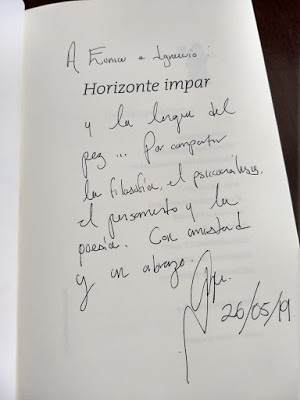 A Eunice e Ignacio:
Horizonte impar
y la lengua del
pez... Por compartir
la filosofía, el psicoanálisis,
el pensamiento y la
poesía. Con amistad
y un abrazo.
26/05/19